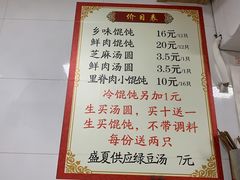 价目表
乡味馄饨 16元/12只
鲜肉馄饨 20元/12只
芝麻汤圆 3.5元/1只
鲜肉汤圆 3.5元/1只
里脊肉小馄饨 10元/16只
冷馄饨另加1元
生买汤圆，买十送一
生买馄饨，不带调料
每份送两只
盛夏供应绿豆汤 7元